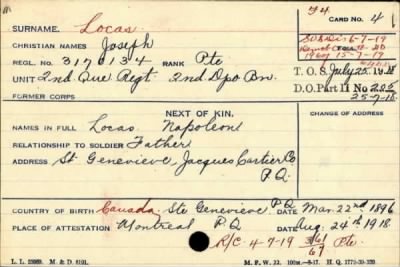 SURNAME. Locas CARD NO. 4
CHRISTIAN NAMES Joseph
REGL. NO. 3170134 RANK Pte
UNIT 2nd Que Regt. 2nd Dpo Bn. T.O.S. July 25 1918
D.O. Part II No 202
FORMER CORPS 25-7-18
NEXT OF KIN. CHANGE OF ADDRESS
NAMES IN FULL Locas Napoleon
RELATIONSHIP TO SOLDIER Father
ADDRESS St. Genevieve, Jacques Cartier Co
P.Q.
COUNTRY OF BIRTH Canada, Ste Genevieve P.Q. DATE Mar. 22nd 1896
PLACE OF ATTESTATION Montreal P.Q DATE Aug. 24th 1918
R/C 4-7-19 Pte
M. F. W. 22.